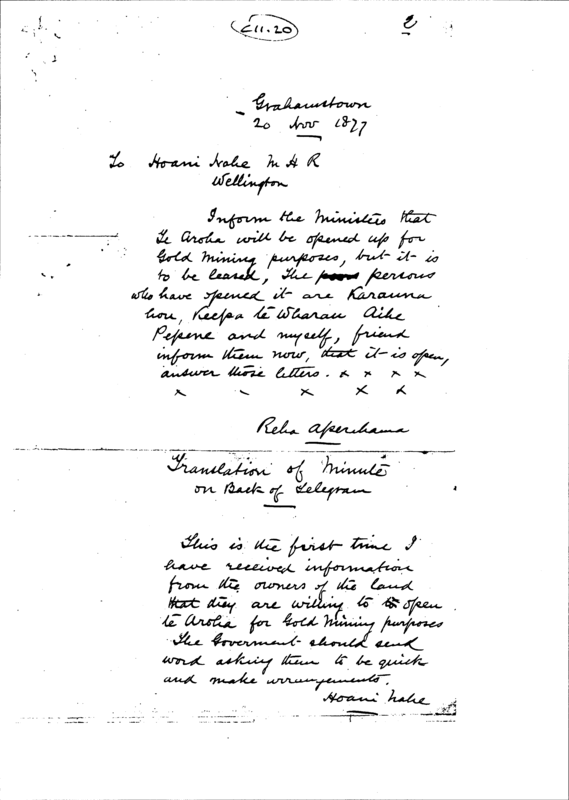 C11.20
2
Grahamstown
20 Nov 1877
To Hoani Nahe M H R
Wellington
Inform the Ministers that
Te Aroha will be opened up for
Gold Mining purposes, but it is
to be leased, The persons
who have opened it are Karauna
hou, Keepa te Wharau Aihe
Pepene and myself, friend
inform them now, that it is open,
answer those letters. x x x x
x - x x x
Reha Aperehama
Translation of Minute
on Back of Telegram
This is the first time I
have received information
from the owners of the land
that they are willing to open
te Aroha for Gold Mining purposes
The Goverment should send
word asking them to be quick
and make arrangements.
Hoani Nahe